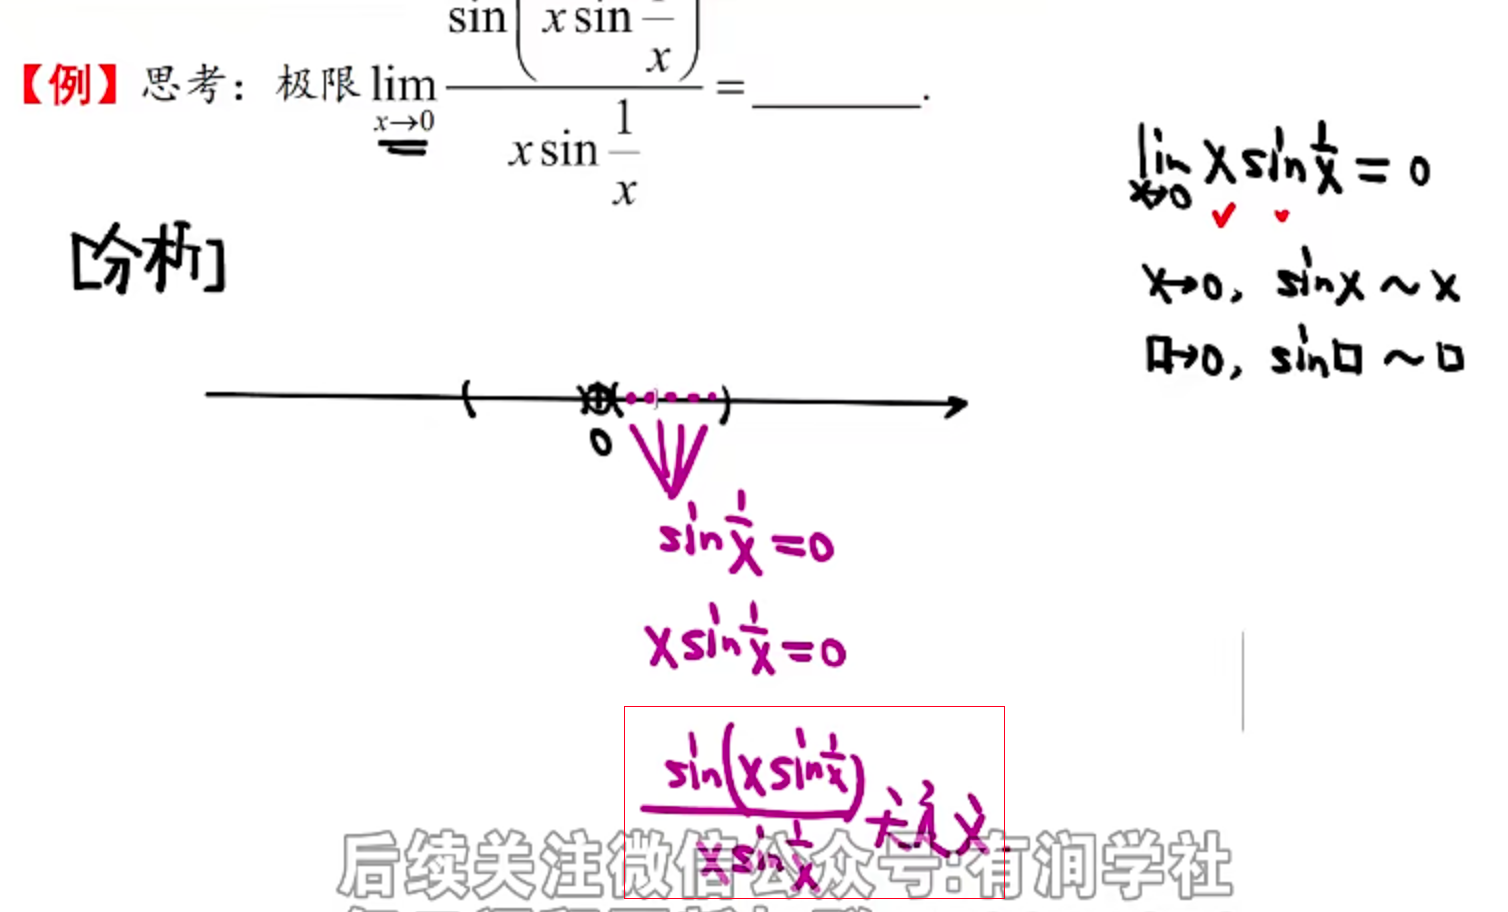 【例】思考：极限 lim x→0 sin(x sin 1/x) / (x sin 1/x) = ________.
lim x→0 x sin 1/x = 0
[分析]
x→0, sinx ~ x
□→0, sin□ ~ □
0
sin 1/x = 0
x sin 1/x = 0
sin(x sin 1/x) / (x sin 1/x) 无定义
后续关注微信公众号:有润学社